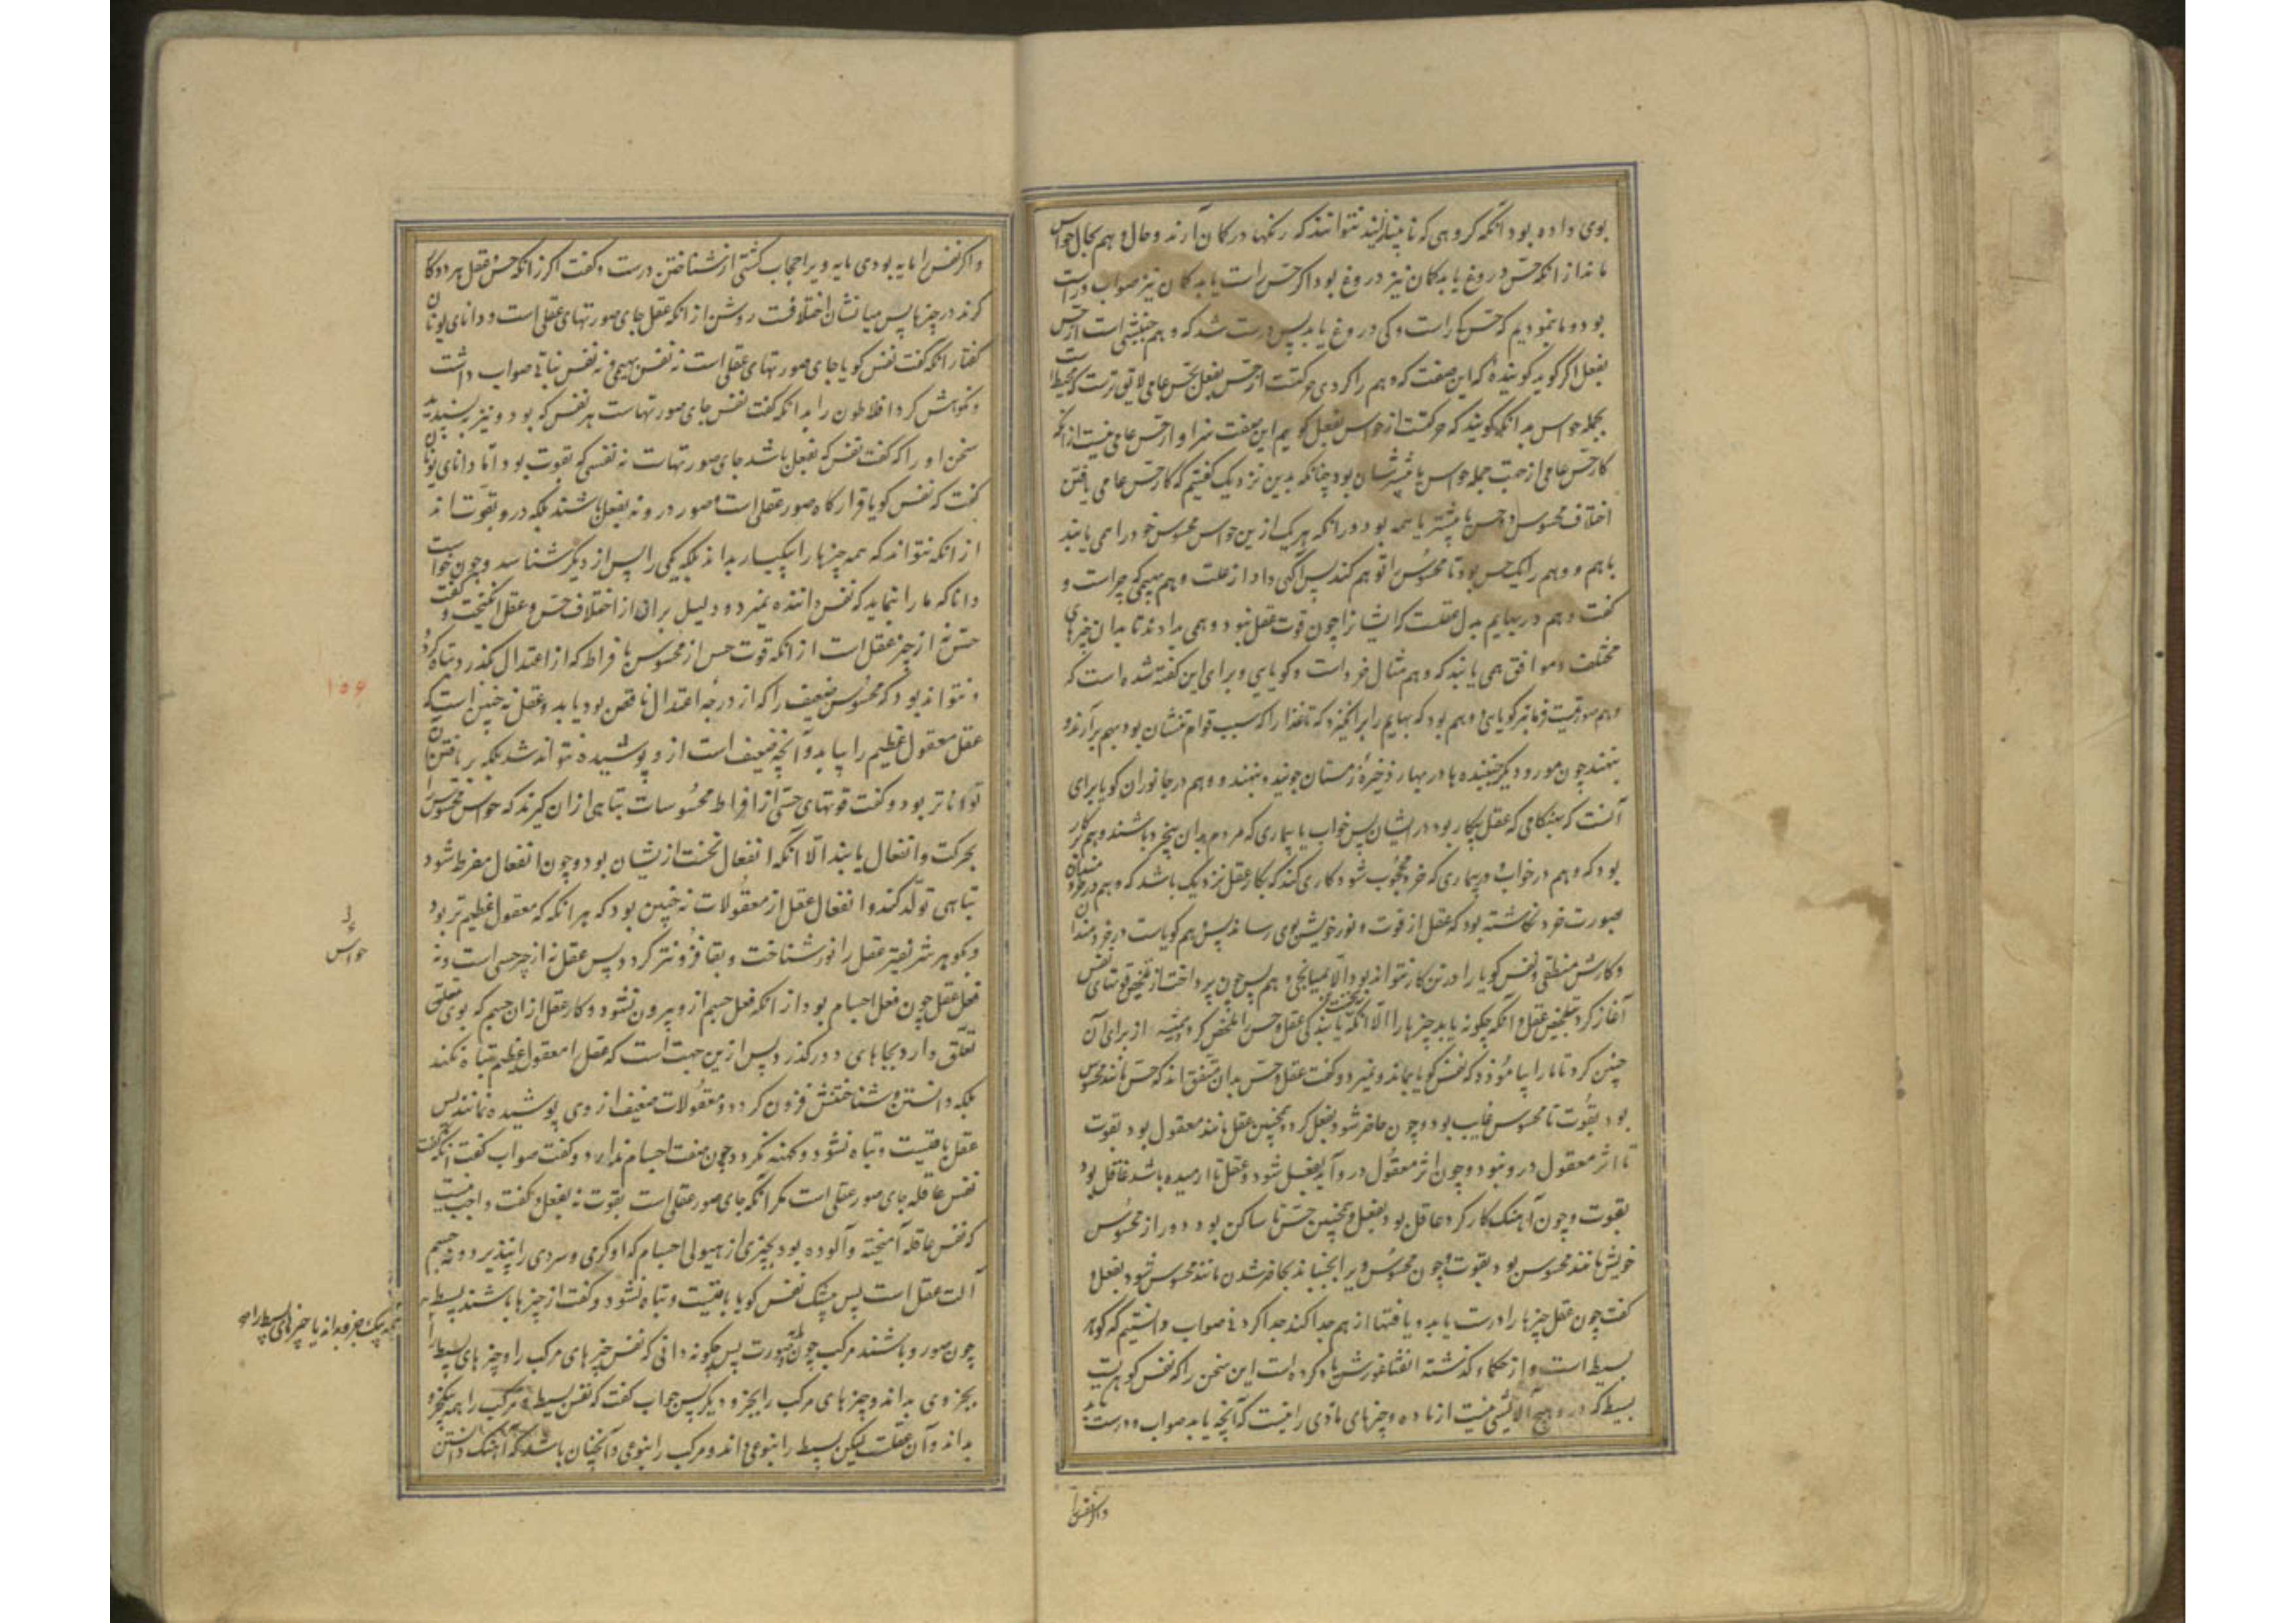 بوی داده بود آنکه گروهی که نابینااند نتوانند که رنگها در گمان آرند و حال وهم بحال حواس
ماند از آنکه حسّ دروغ یابد گمان نیز دروغ بود اگر حسّ راست یابد گمان نیز صواب و راست
بود و ما بنمودیم که حسّ کی راست و کی دروغ یابد پس درست شد که وهم جنبشی است از حسّ
بفعل اگر گوید گوینده که این صفت که وهم را کردی حرکتست از حسّ بفعل بحسّ عامی لایق ترست که محیط است
بجمله حواس بدانکه گویند که حرکتست از حواس بفعل گویم این صفت سزاوار حس عامی نیست از آنکه
کار حسّ عامی از جهت جمله حواس با بیشترشان بود چنانکه بدین نزدیک گفتیم که کار حسّ عامی یافتن
اختلاف محسوس دو حس یا بیشتر یا همه بود و در آنکه هر یک ازین حواس محسوس خود را می یابند
باهم و وهم را یک حس بود تا محسوس را توهم کند پس آگهی داد از علت وهم بهیمی که چراست و
گفت وهم در بهایم بدل عقلست که ایشان را چون قوت عقل نبود وهمی بدادند تا بدان چیزهای
مختلف و موافق همی یابند که وهم مثال خرد است و گویایی و برای این گفته شده است که
وهم صورتیست فرمانبر گویایی وهم بود که بهایم را برانگیزد که تا غذا را که سبب قوام تنشان بود بهم برآرند و
بنهند چون مور و دیگر جنبنده ها در بهار ذخیرهٔ زمستان جویند و بنهند و وهم در جانوران گویا برای
آنست که هنگامی که عقل بیکار بود در ایشان پس خواب یا بیماری که مردم بدان بیخرد باشند وهم کارگر
بود که وهم در خواب و بیماری که خرد محجوب شود کاری کند که بکار عقل نزدیک باشد که وهم در خردمندان
بصورت خرد نگاشته بود که عقل از قوت و نور خویش بوی رساند پس وهم گویاست در خردمندان
و کارش منطقی و نفس گویا را در تن کار نتواند بود الّا بمیانجی وهم پس چون پرداخت از تلخیص قوتهای نفس
آغاز کرد بتلخیص عقل و آنکه چگونه یابد چیزها را الّا آنکه نخست یابندگی عقل و حس را ملخص کرد از برای آن
چنین کرد تا ما را بیاموزد که نفس گویا بماند و نمیرد و گفت عقل و حسّ بدان متفق اند که حسّ مانند محسوس
بود بقوّت تا محسوس غایب بود و چون حاضر شود بفعل گردد همچنین عقل مانند معقول بود بقوت
تا اثر معقول درو نبود و چون اثر معقول درو آید بفعل شود و عقل تا آرمیده باشد عاقل بود
بقوت و چون آهنگ کار کرد عاقل بود بفعل و همچنین حسّ تا ساکن بود و دور از محسوس
خویش مانند محسوس بود بقوت و چون محسوس ویرا بجنباند بحاضر شدن مانند محسوس شود بفعل و
گفت چون عقل چیزها را درست یابد و یافتها از هم جدا کند جدا کردنی صواب دانستیم که گوهر
بسیط است و از حکماء گذشته انقساغورس یاد کرده است این سخن را که نفس گوهریست
بسیط که درو هیچ آلایشی نیست از ماده و چیزهای مادّی را نیست که آنچه یابد صواب و درست یابد
واگر نفس را
واگر نفس را مایه بودی مایه ویرا حجاب گشتی از شناختن درست و گفت اگر زانکه حسّ و عقل هر دو کار
کردند در چیزها پس میانشان اختلافست روشن از آنکه عقل جای صورتهای عقلی است و دانای یونان
گفتار آنکه گفت نفس گویا جای صورتهای عقلی است نه نفس بهیمی و نه نفس نباتی صواب داشت
و نکوهش کرد افلاطون را بدانکه گفت نفس جای صورتهاست هر نفس که بود و نیز نپسندید
سخن او را که گفت نفس که بفعل باشد جای صورتهاست نه نفسی که بقوت بود امّا دانای یونان
گفت که نفس گویا قرارگاه صور عقلی است و صور درو نه بفعل باشند بلکه درو بقوّت اند
از آنکه نتواند که همه چیزها را بیکبار بداند بلکه یکی را پس از دیگر شناسد و چون خواست
دانا که ما را بنماید که نفس داننده نمیرد و دلیل بر آن از اختلاف حسّ و عقل انگیخت و گفت
حسّ نه از چیز عقل است از آنکه قوت حس از محسوس با فراط که از اعتدال بگذرد تباه گردد
و نتواند بود که محسوس ضعیف را که از درجهٔ اعتدال ناقص بود یابد و عقل نه چنین است که
عقل معقول عظیم را بیابد و آنچه ضعیف است ازو پوشیده نتواند شد بلکه بر یافتن آن
تواناتر بود و گفت قوتهای حسّی از افراط محسوسات تباهی از آن گیرند که حواس محسوس را
بحرکت و انفعال یابند الّا آنکه انفعال نخست ازیشان بود و چون انفعال مفرط شود
تباهی تولّد کند و انفعال عقل از معقولات نه چنین بود که هرآنکه که معقول عظیم تر بود
و بگوهر شریفتر عقل را نور شناخت و بقا فزونتر گردد پس عقل نه از چیز حسی است و نه
فعل عقل چون فعل اجسام بود از آنکه فعل جسم ازو بیرون نشود و کار عقل از آن جسم که بوی متعلق
تعلّق دارد بجاهای دور گذرد پس ازین جهت است که عقل را معقول عظیم تباه نکند
بلکه دانستن و شناختنش فزون گردد و معقولات ضعیف از وی پوشیده نمانند پس
عقل باقیست و تباه نشود و کهنه نگردد چون صفت اجسام ندارد و گفت صواب گفت آنکه گفت
نفس عاقله جای صور عقلی است مگر آنکه جای صور عقلی است بقوت نه بفعل و گفت واجب نیست
که نفس عاقله آمیخته و آلوده بود بچیزی از هیولی اجسام که او گرمی و سردی را نپذیرد و نه جسم
آلت عقل است پس بیشک نفس گویا باقیست و تباه نشود و گفت از چیزها باشند بسیط
چون صور و باشند مرکب چون صورت پس چگونه دانی که نفس چیزهای مرکب را و چیزهای بسیط را
بجزوی بداند و چیزهای مرکب را بجزو دیگر پس جواب گفت که نفس بسیط و مرکب را همه بیک جزو
بداند و آن عقلست لیکن بسیط را بنوعی داند و مرکب را بنوعی و آنچنان باشد که آهنگ دانستن
۱۵۶
حواس
همه بیک جزو بداند یا چیزهای بسیط را